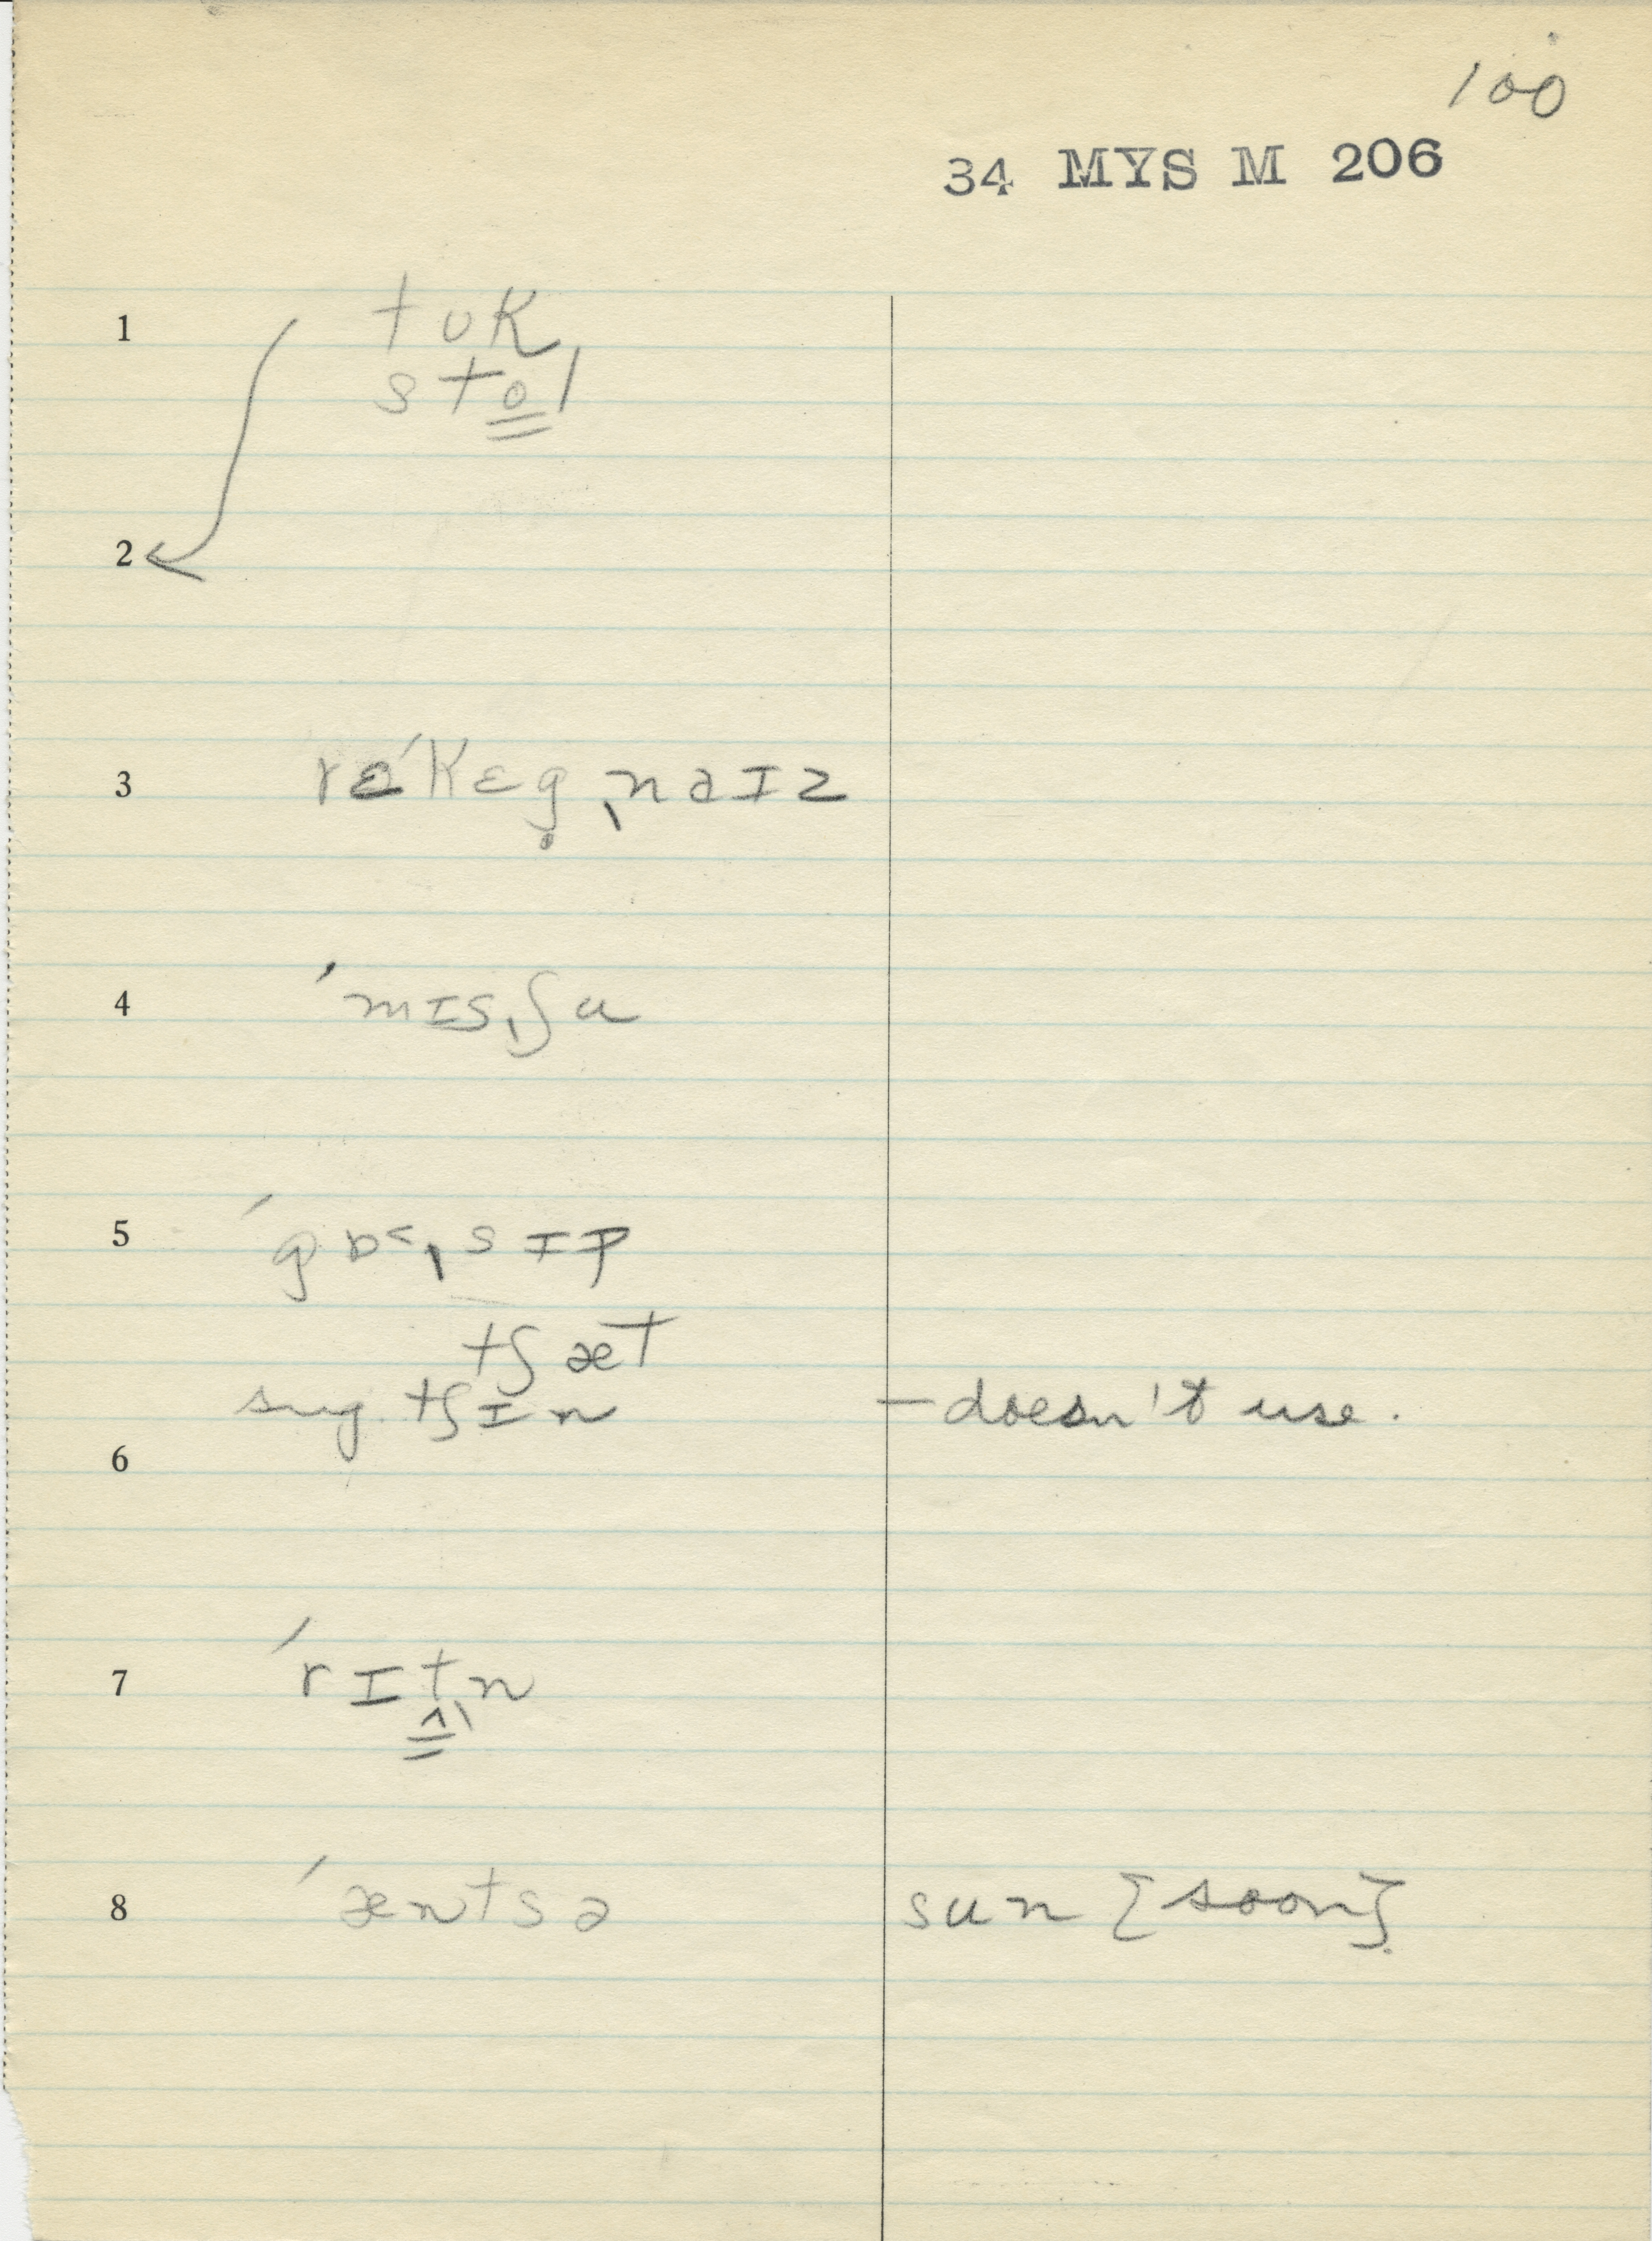 100
34 MYS M 206
1 tʊk
sto̳l
2
3 rɛ́kɛg̥ˌnaɪz
4 ˈmɪsˌʃu
5 ˈgɒ˂ˌsɪp
tʃæt
sug. tʃɪn – doesn't use.
6
7 ˈrɪṱ̳ˌn
8 ˈæntsə sun [soon]